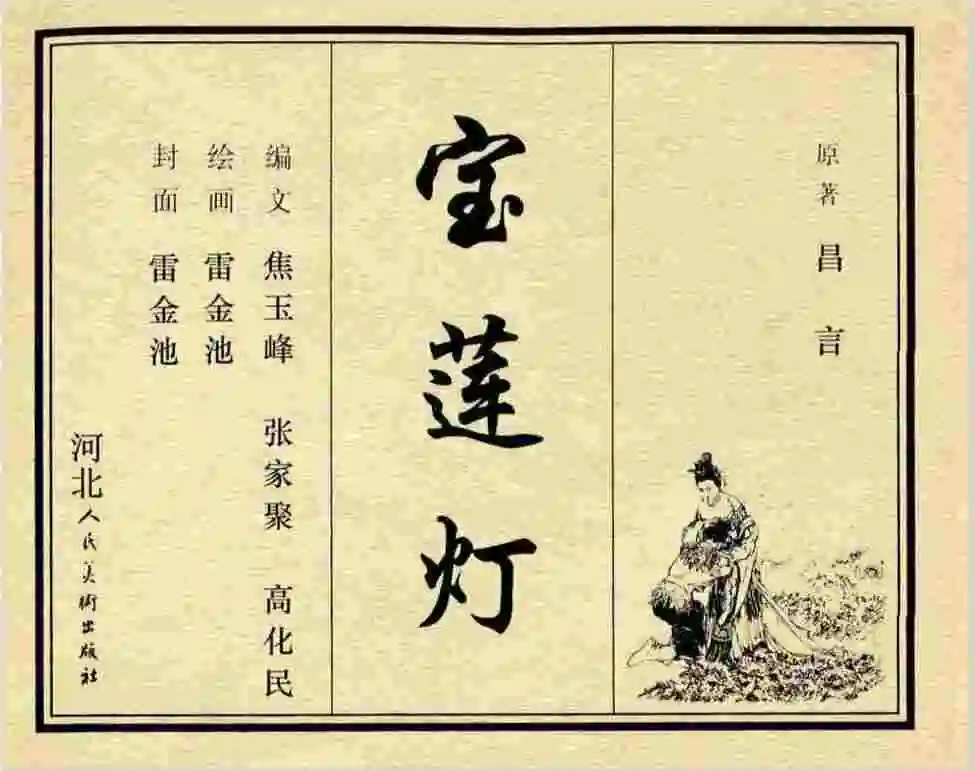 原著 昌言
宝莲灯
编文 焦玉峰 张家聚 高化民
绘画 雷金池
封面 雷金池
河北人民美術出版社